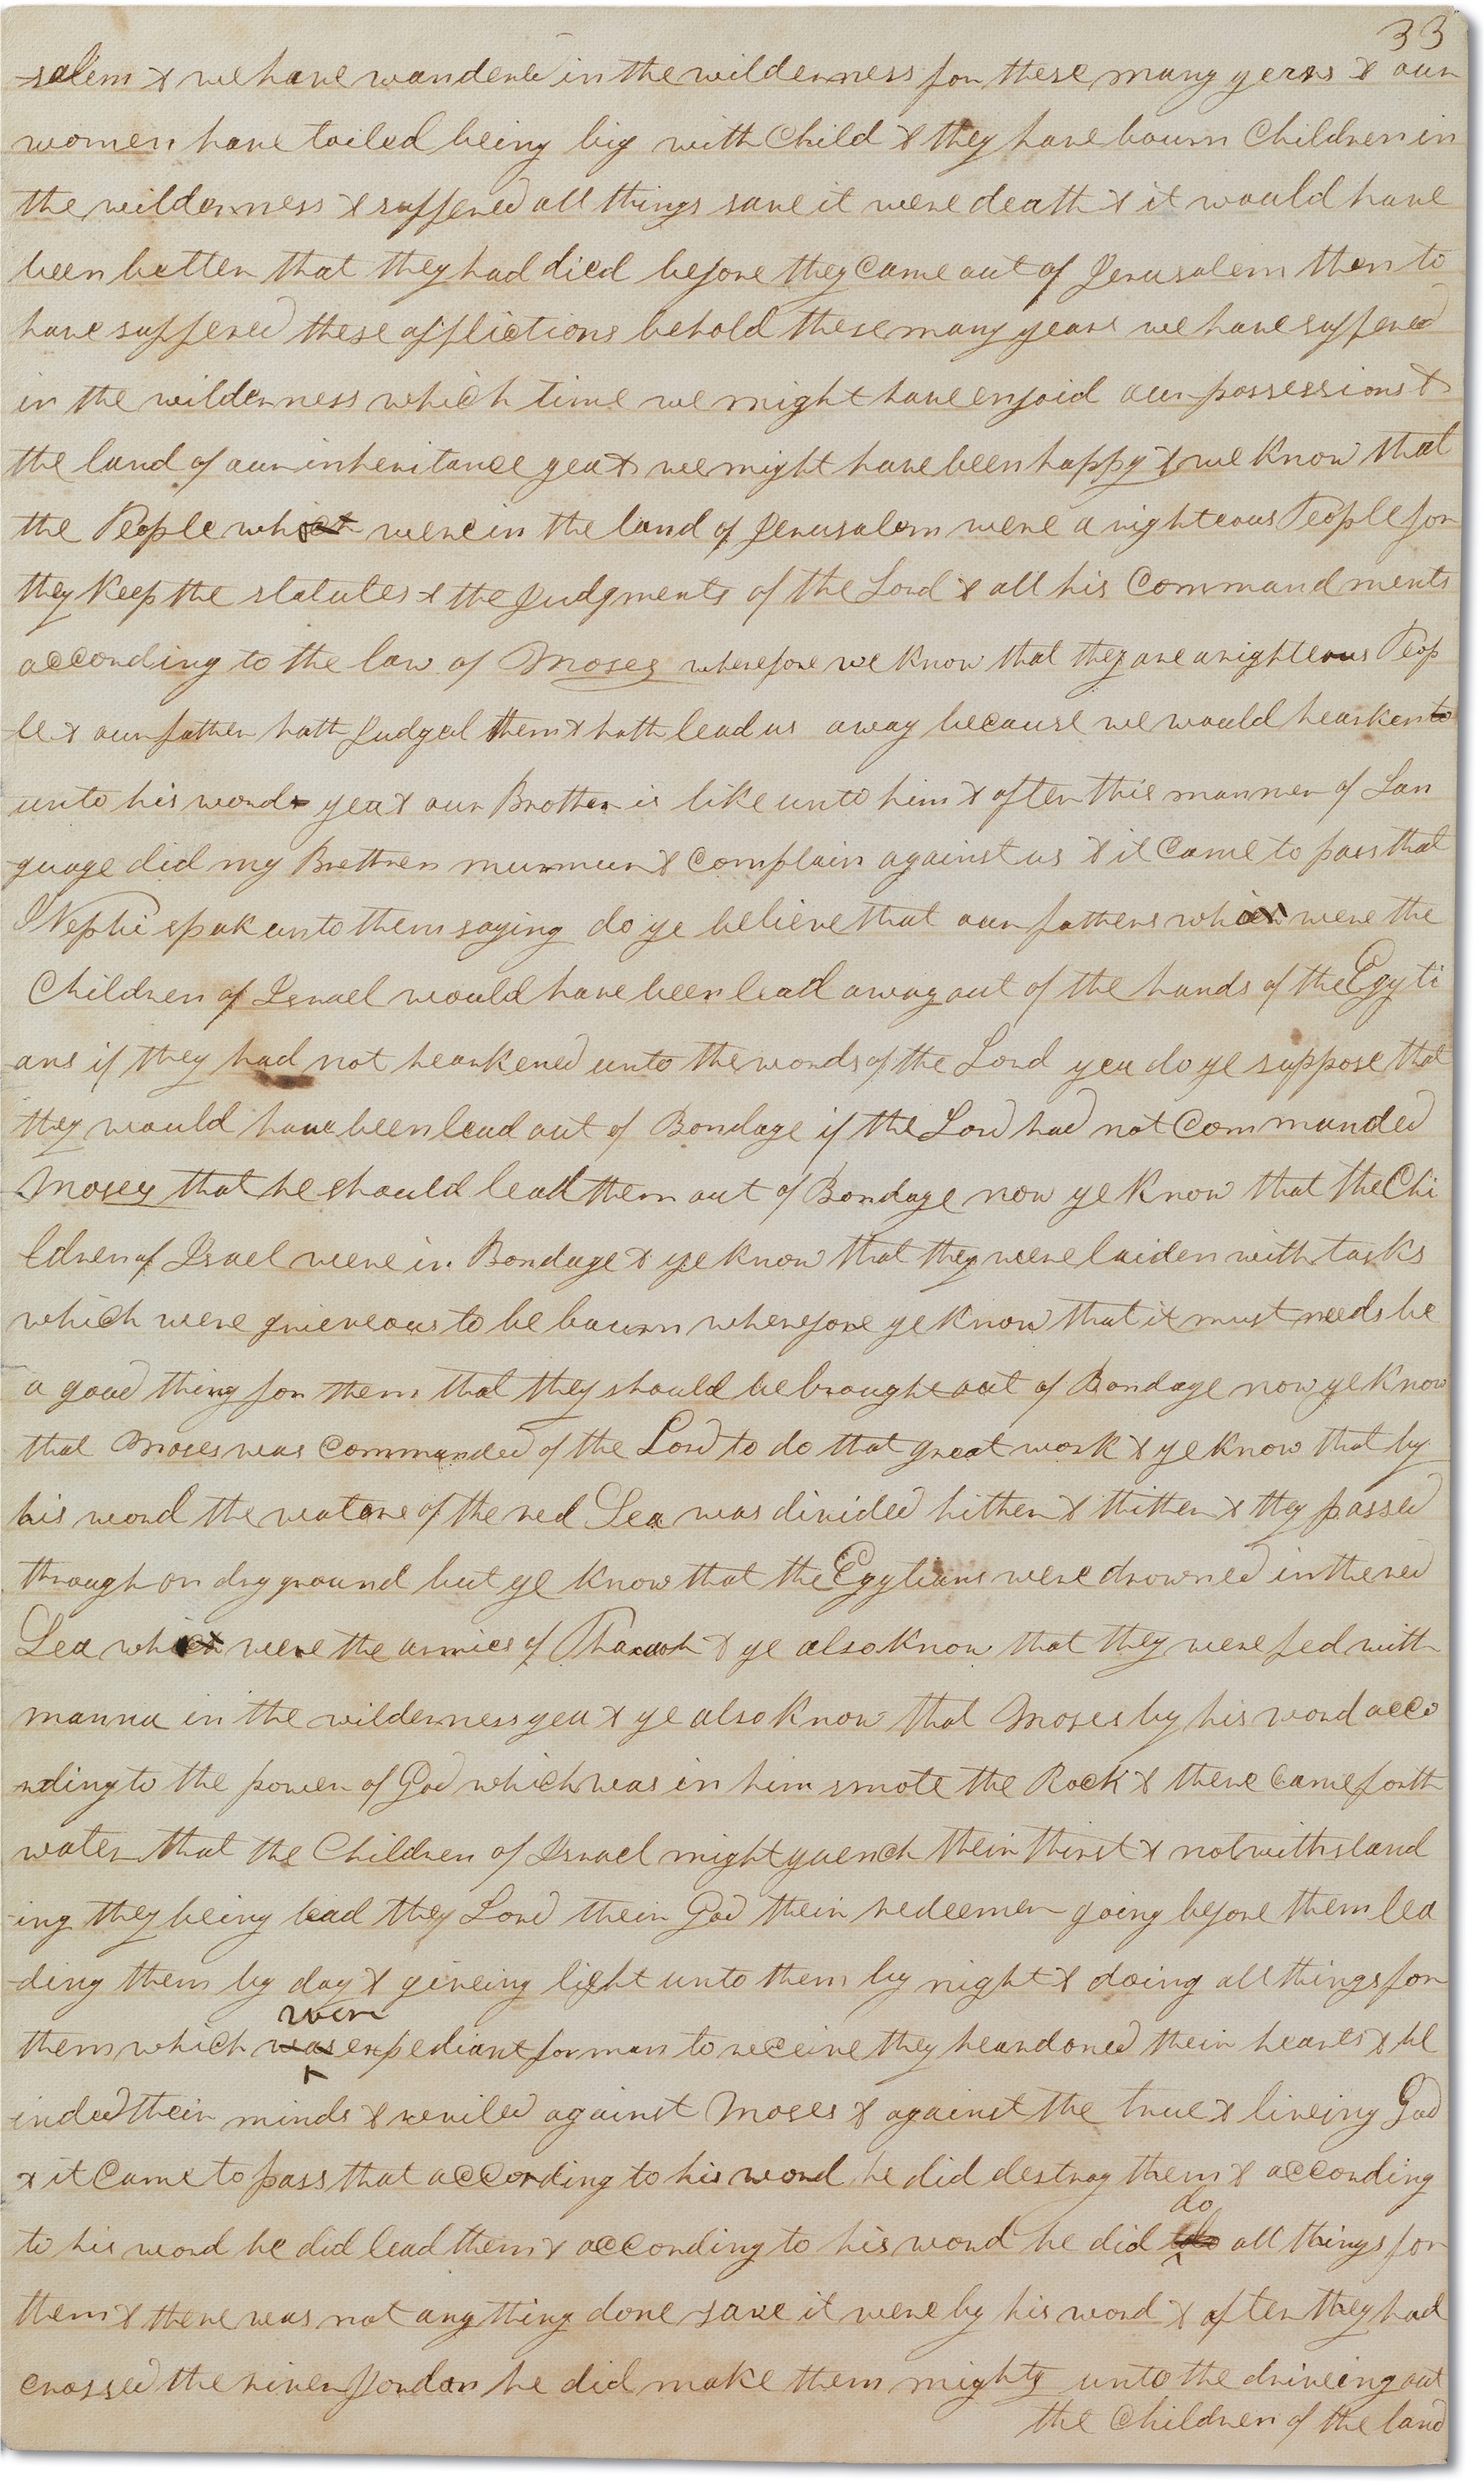 33
-salem & we have wandered in the wilderness for these many yeras & our
women have toiled being big with Child & they have bourn Children in
the wilderness & suffered all things save it were death & it would have
been better that they had died before they Came out of Jerusalem then to
have suffered these afflictions behold these many years we have suffered
in the wilderness which time we might have enjoid our possessions &
the land of our inheritance yea & we might have been happy & we know that
the People which were in the land of Jerusalem were a righteous People for
they keep the statutes & the Judgments of the Lord & all his Commandments
according to the law of Moses wherefore we know that they are a righteous Peop
le & our father hath Judged them & hath lead us away because we would hearken to
unto his words yea & our Brother is like unto him & after this manner of Lan
guage did my Brethren murmur & Complain against us & it Came to pass that
I Nephi spak unto them saying do ye believe that our fathers which were the
Children of Israel would have been lead away out of the hands of the Egyti
ans if they had not hearkened unto the words of the Lord yea do ye suppose that
they would have been lead out of Bondage if the Lord had not Commanded
Moses that he should lead them out of Bondage now ye know that the Chi
ldren of Israel were in Bondage & ye know that they were laiden with tasks
which were grieveous to be bourn wherefore ye know that it must needs be
a good thing for them that they should be brought out of Bondage now ye know
that Moses was Commanded of the Lord to do that great work & ye know that by
his word the waters of the red Sea was divided hither & thither & they passed
through on dry ground but ye know that the Egytians were drowned in the red
Sea which were the armies of Pharaoh & ye also know that they were fed with
manna in the wilderness yea & ye also know that Moses by his word acco
rding to the power of God which was in him smote the Rock & there Came forth
water that the Children of Israel might quench their thirst & notwithstand
-ing they being lead they Lord their God their redeemer going before them lea
-ding them by day & giveing light unto them by night & doing all things for
were
them which was expediant for man to receive they heardoned their hearts & bl
inded their minds & reviled against Moses & against the true & liveing God
& it Came to pass that according to his word he did destroy them & according
do
to his word he did lead them & according to his word he did do all things for
them & there was not any thing done save it were by his word & after they had
crossed the river Jordan he did make them mighty unto the driveing out
the Children of the land